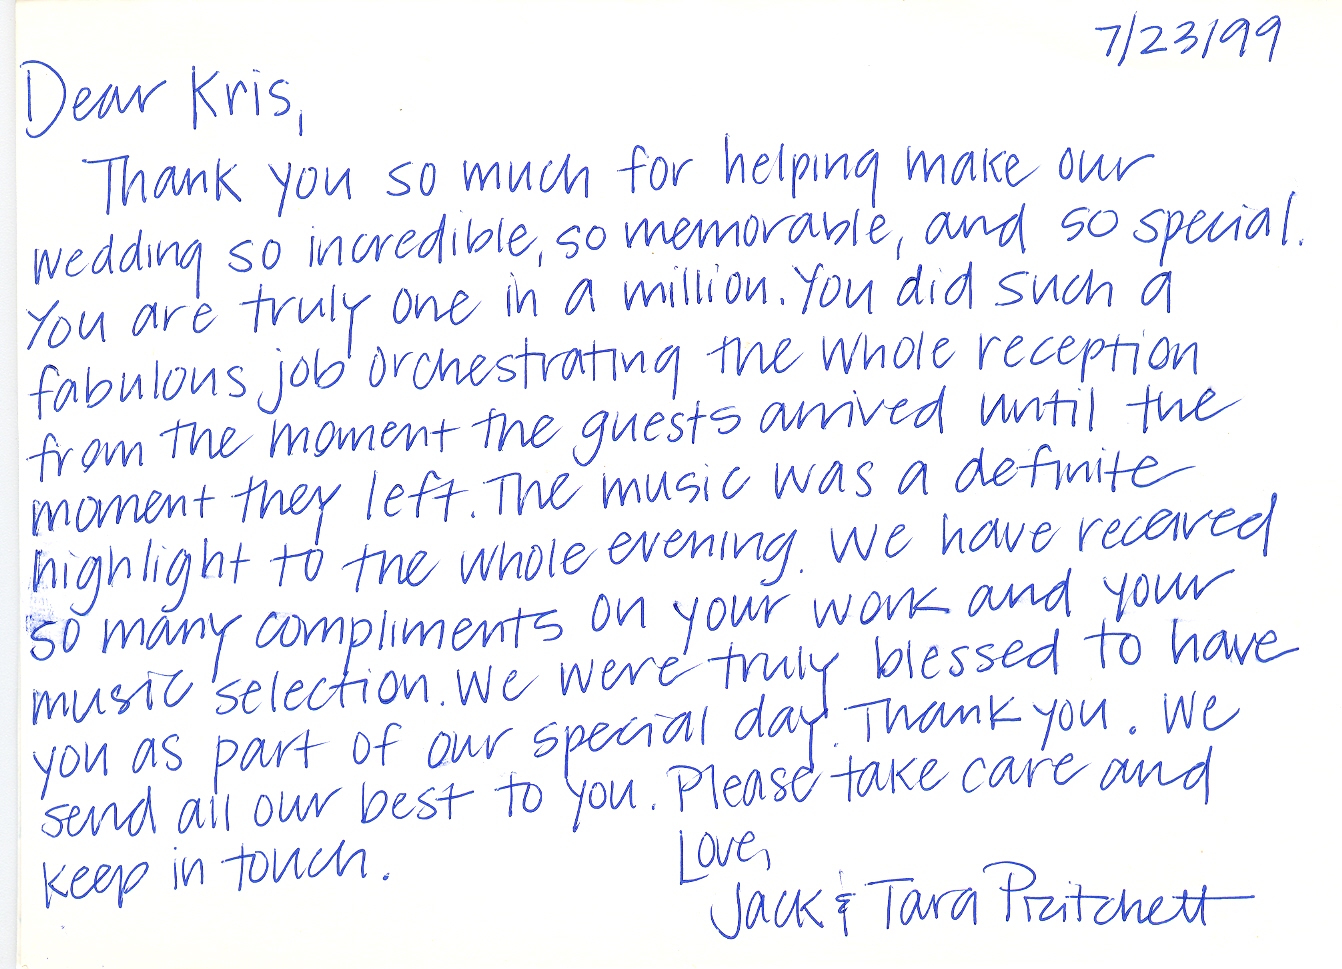 7/23/99
Dear Kris,
Thank you so much for helping make our
wedding so incredible, so memorable, and so special.
You are truly one in a million. You did such a
fabulous job orchestrating the whole reception
from the moment the guests arrived until the
moment they left. The music was a definite
highlight to the whole evening. We have received
so many compliments on your work and your
music selection. We were truly blessed to have
you as part of our special day. Thank you. We
send all our best to you. Please take care and
keep in touch.
Love,
Jack & Tara Pritchett